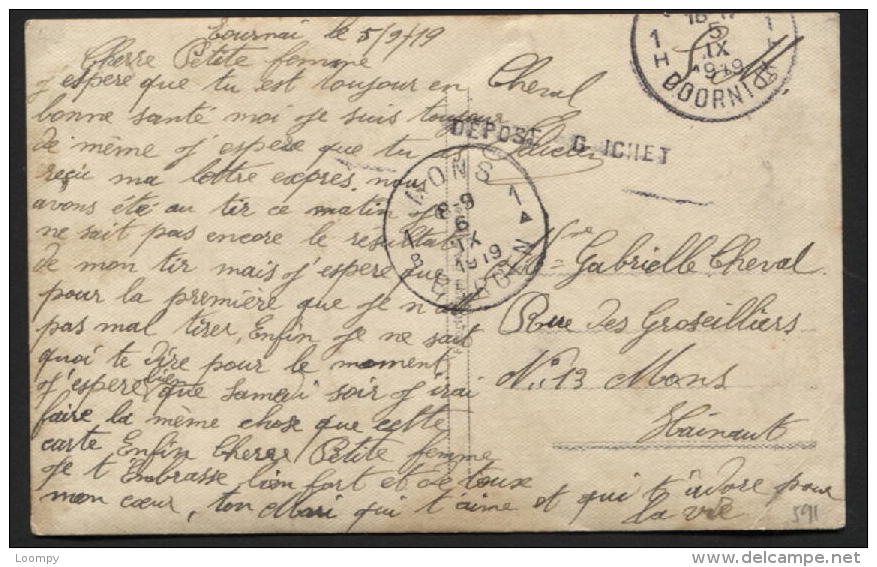 Tournai le 5/9/19
Cherre Petite femme
j'espere que tu est toujour en
bonne santé moi je suis toujour
de même j'espere que tu a
reçu ma lettre expres, nous
avons été au tir ce matin je
ne sait pas encore le résultat
de mon tir mais j'espere que
pour la première que je n'ait
pas mal tirer, Enfin je ne sait
quoi te dire pour le moment
j'espere bien que Samedi soir j'irai
faire la même chose que cette
carte Enfin Cherre Petite femme
je t'Embrasse bien fort et de toux
mon cœur, ton Mari qui t'aime et qui t'adore pour
la vie
Cheval
Lucien
DEPOSE G ICHET
1 H
5
IX
1919
DOORNIK
MONS
1 A
8-9
6
IX
1919
BERGEN
Mme Gabrielle Cheval
Rue des Groseilliers
No 13 Mons
Hainaut
591
Loompy
delcampe.net